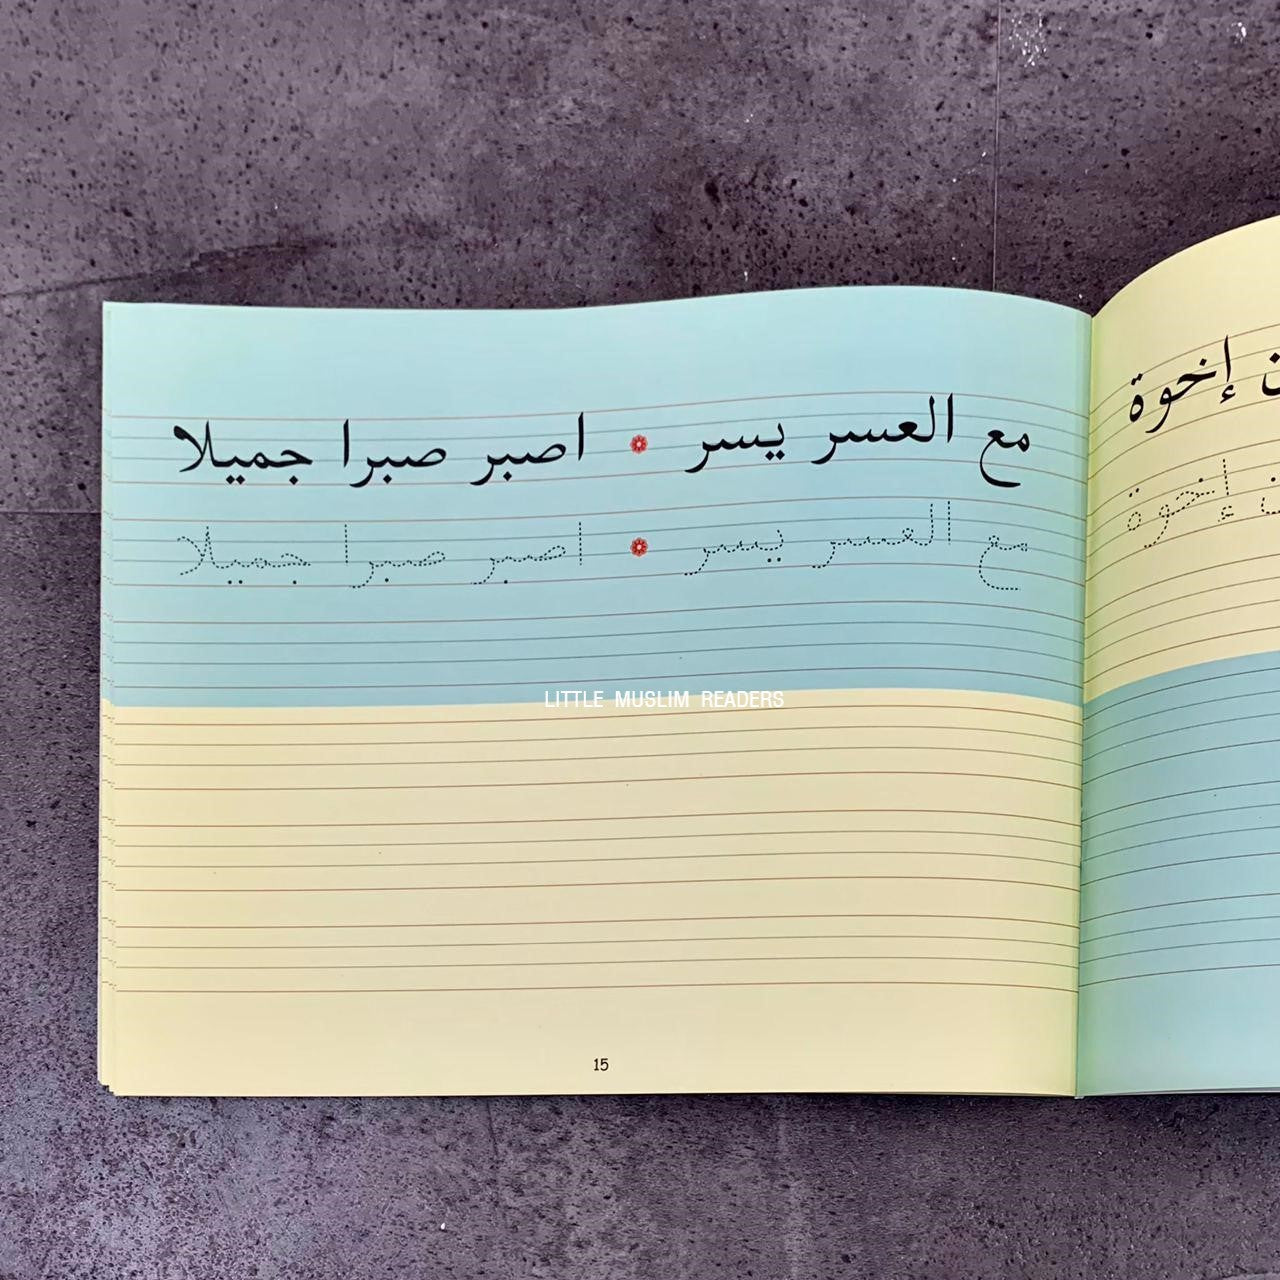 مع العسر يسر ۞ اصبر صبرا جميلا
مع العسر يسر ۞ اصبر صبرا جميلا
LITTLE MUSLIM READERS
15
إخوة
إخوة